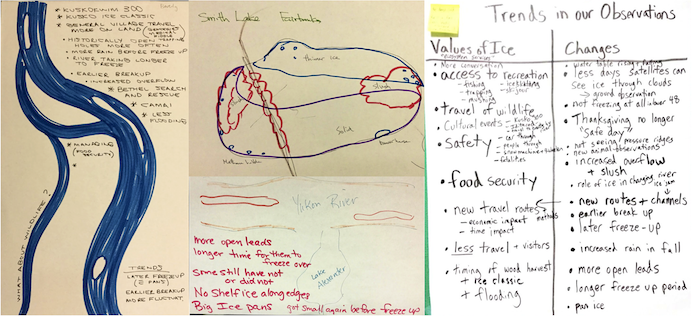 * KUSKOKWIM 300
* KUSKO ICE CLASSIC
* GENERAL VILLAGE TRAVEL
MORE ON LAND
• HISTORICALLY OPEN
HOLES MORE OFTEN
• MORE RAIN BEFORE FREEZE UP
• RIVER TAKING LONGER
TO FREEZE
• EARLIER BREAKUP
• INCREASED OVERFLOW
* BETHEL SEARCH
AND RESCUE
* CAMAI
* LESS
FLOODING
* MANAGING
(FOOD
SECURITY)
*
WHAT ABOUT WILDLIFE?
TRENDS
LATER FREEZEUP
EARLIER BREAKUP
MORE FLUCTUAT.
Smith Lake Fairbanks
thinner ice
Slush
Solid
Yukon River
more open leads
longer time for them to
freeze over
some still have not
or did not
No Shelf ice along edges
Big Ice pans got small again before freeze up
Lake
Alexander
Trends in our Observations
Values of Ice
• More conversation
• access to recreation
- fishing
- trapping
- mushing
- skijour
• travel of wildlife
Cultural events
• Safety
- fatalities
• food security
• new travel routes
- economic impact
- time impact
methods
• less travel + visitors
• timing of wood harvest
+ ice classic
+ flooding
Changes
• less days satellites can
see ice through clouds
↳ ground observation
• not freezing at all above 48
• Thanksgiving no longer
"safe day"
• not seeing pressure ridges
• new animal observations
• increased overflow
+ slush
• role of ice in changing river
ice jam
• new routes + channels
• earlier break up
• later freeze-up
• increased rain in fall
• more open leads
• longer freeze up period
• pan ice